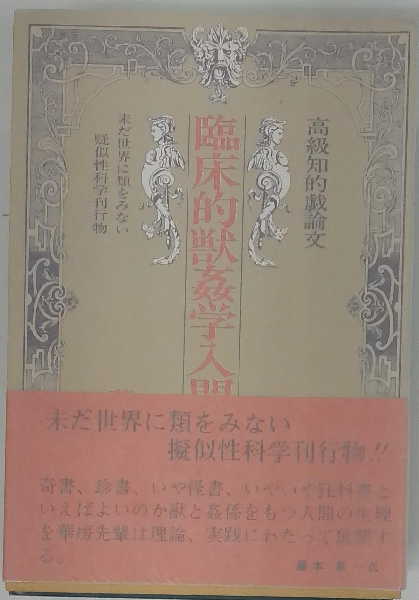 高級知的戯論文
臨床的獣姦学入門
未だ世界に類をみない
疑似性科学刊行物
未だ世界に類をみない
擬似性科学刊行物!!
奇書、珍書、いや怪書、いやいや狂科書と
いえばよいのか獣と姦係をもつ人間の生癭
を華房先輩は理論、実践にわたって展開す
る。
藤本 義一氏